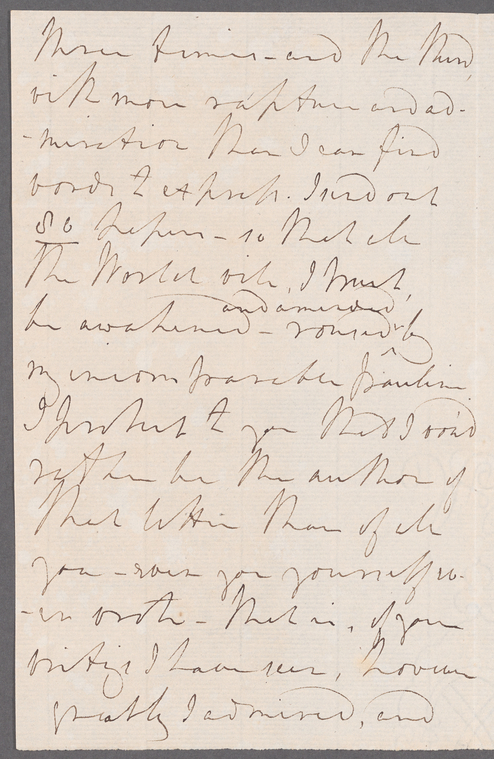 three times - and the third,
with more rapture and ad-
-miration than I can find
words to express. I send out
80 papers - so that all
the World will, I trust,
and amended,
be awakened - roused by
my incomparable Pauline
I protest to you that I wou'd
rather be the author of
that letter than of all
you - even you yourself ev-
-er wrote - that is, of your
writings I have seen, however
greatly I admired, and